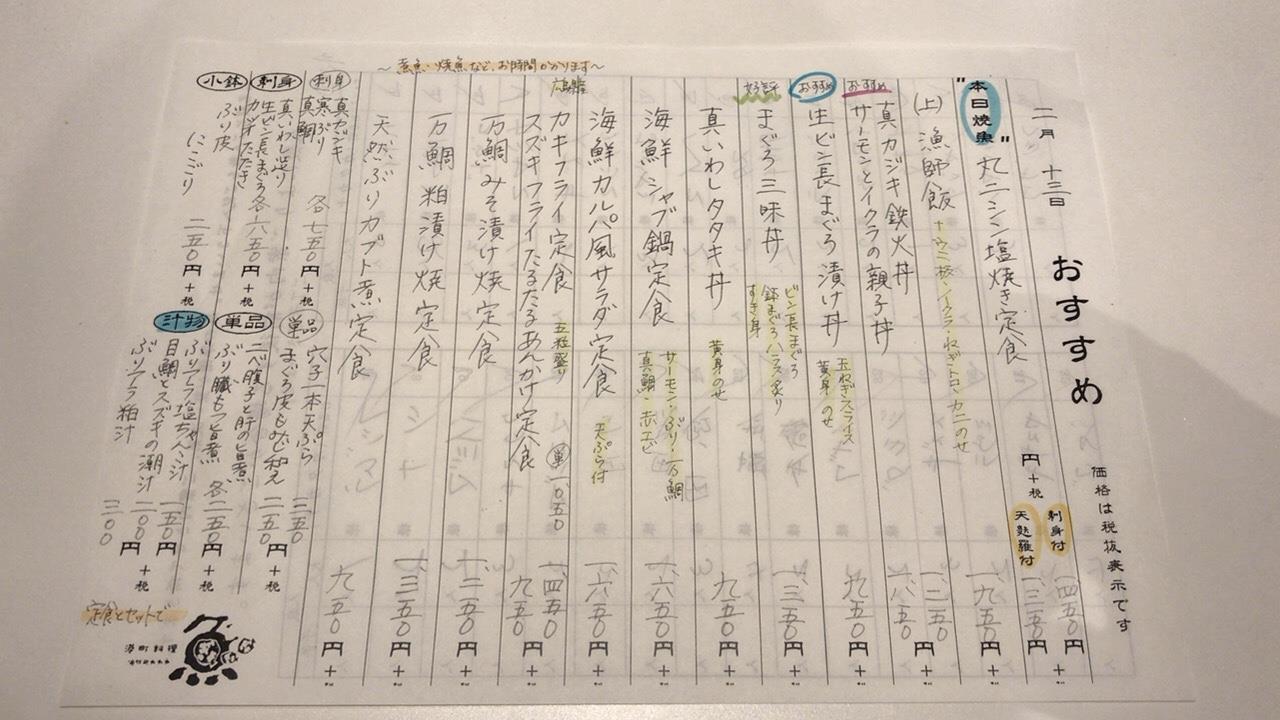 価格は税抜表示です
二月 十三日 おすすめ
"本日焼魚" 丸ニシン塩焼き定食
円+税
刺身付 一、四五〇円+
天麩羅付 一、三五〇円+
(上)漁師飯 一、九五〇円+
真カジキ鉄火丼 一、二五〇
おすすめ サーモンとイクラの親子丼 一、六五〇円+
おすすめ 生ビン長まぐろ漬け丼 玉ねぎスライス 黄身のせ 九五〇円+
好評 まぐろ三味丼 ビン長まぐろ ハラス炙り すき身 一、三五〇円+
真いわしタタキ丼 黄身のせ 九五〇円+
海鮮シャブ鍋定食 サーモン・ぶり・万鯛 真鯛・赤エビ 一、六五〇円+
海鮮カルパ風サラダ定食 天ぷら付 一、六五〇円+
カキフライ定食 五粒盛り 単 一〇五〇 一、四五〇円+
スズキフライたるたるあんかけ定食 九五〇
万鯛みそ漬け焼定食 一、二五〇円+
万鯛粕漬け焼定食 一、三五〇円+
天然ぶりカブト煮定食 九五〇円+
~煮魚・焼魚など、お時間かかります~
刺身 真カジキ
寒ぶり
真鯛 各七五〇円+税
刺身 真いわし造り
生ビン長まぐろ
カツオたたき 各六五〇円+税
小鉢 ぶり皮
にこごり 二五〇円+税
単品 穴子一本天ぷら 三五〇
まぐろ皮もみじ和え 二五〇円+税
単品 ニベ腹子と肝の旨煮
ぶり臓もつ旨煮 各二五〇円+税
汁物 ぶりアラ塩ちゃんこ汁 一五〇円+税
目鯛とスズキの潮汁 二〇〇円+税
ぶりアラ粕汁 二〇〇
定食とセットで
港町料理